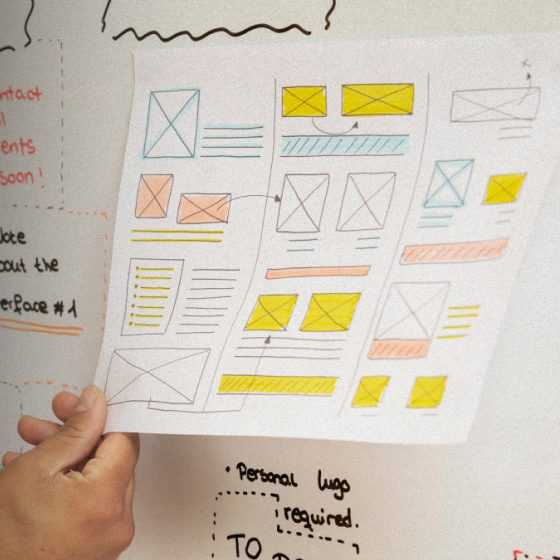 ntact
ents
soon!
bout the
erface #1
• Personal logo
required.
TO